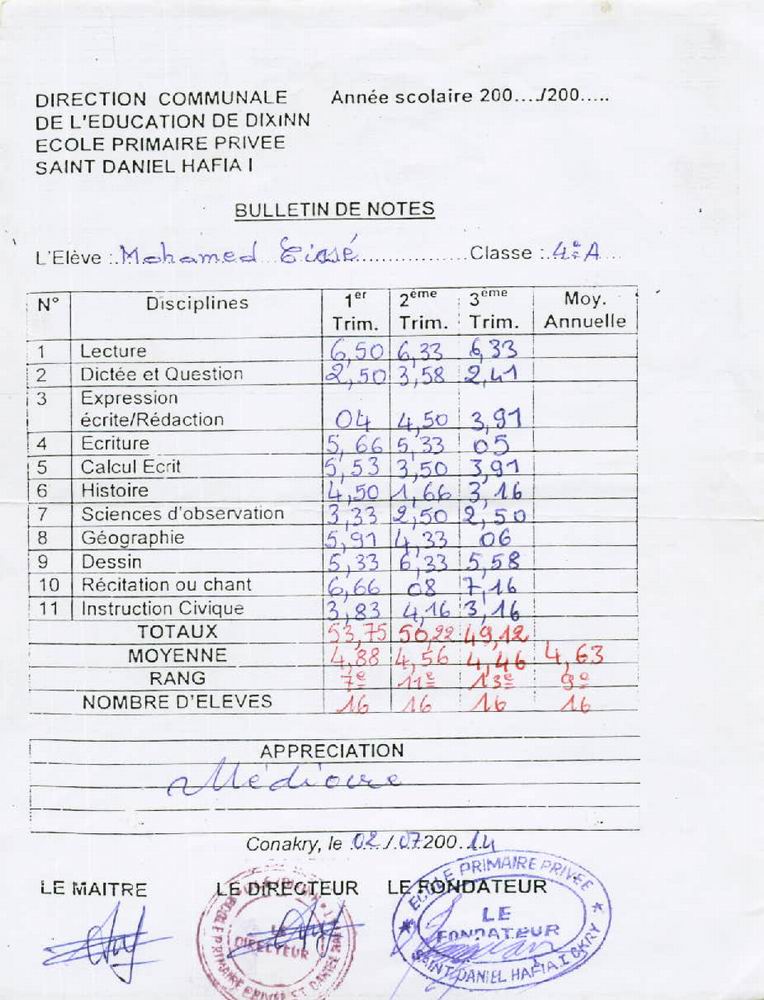 DIRECTION COMMUNALE
DE L'EDUCATION DE DIXINN
ECOLE PRIMAIRE PRIVEE
SAINT DANIEL HAFIA I
Année scolaire 200..../200.....
BULLETIN DE NOTES
L'Elève :.Mohamed ..................Classe :.4è A...
N° Disciplines 1er Trim. 2ème Trim. 3ème Trim. Moy. Annuelle
1 Lecture 6,50 6,33 6,33
2 Dictée et Question 2,50 3,58 2,41
3 Expression
écrite/Rédaction 04 4,50 3,91
4 Ecriture 5,66 5,33 05
5 Calcul Ecrit 5,53 3,50 3,91
6 Histoire 4,50 1,66 3,16
7 Sciences d'observation 3,33 2,50 2,50
8 Géographie 5,91 4,33 06
9 Dessin 5,33 6,33 5,58
10 Récitation ou chant 6,66 08 7,16
11 Instruction Civique 3,83 4,16 3,16
TOTAUX 53,75 50,22 49,12
MOYENNE 4,88 4,56 4,46 4,63
RANG 7e 11e 13e 9e
NOMBRE D'ELEVES 16 16 16 16
APPRECIATION
Médiocre
Conakry, le .02./.07.200.14
LE MAITRE LE DIRECTEUR LE FONDATEUR
LE
DIRECTEUR
ECOLE PRIMAIRE PRIVEE
LE
FONDATEUR
SAINT DANIEL HAFIA I CKRY